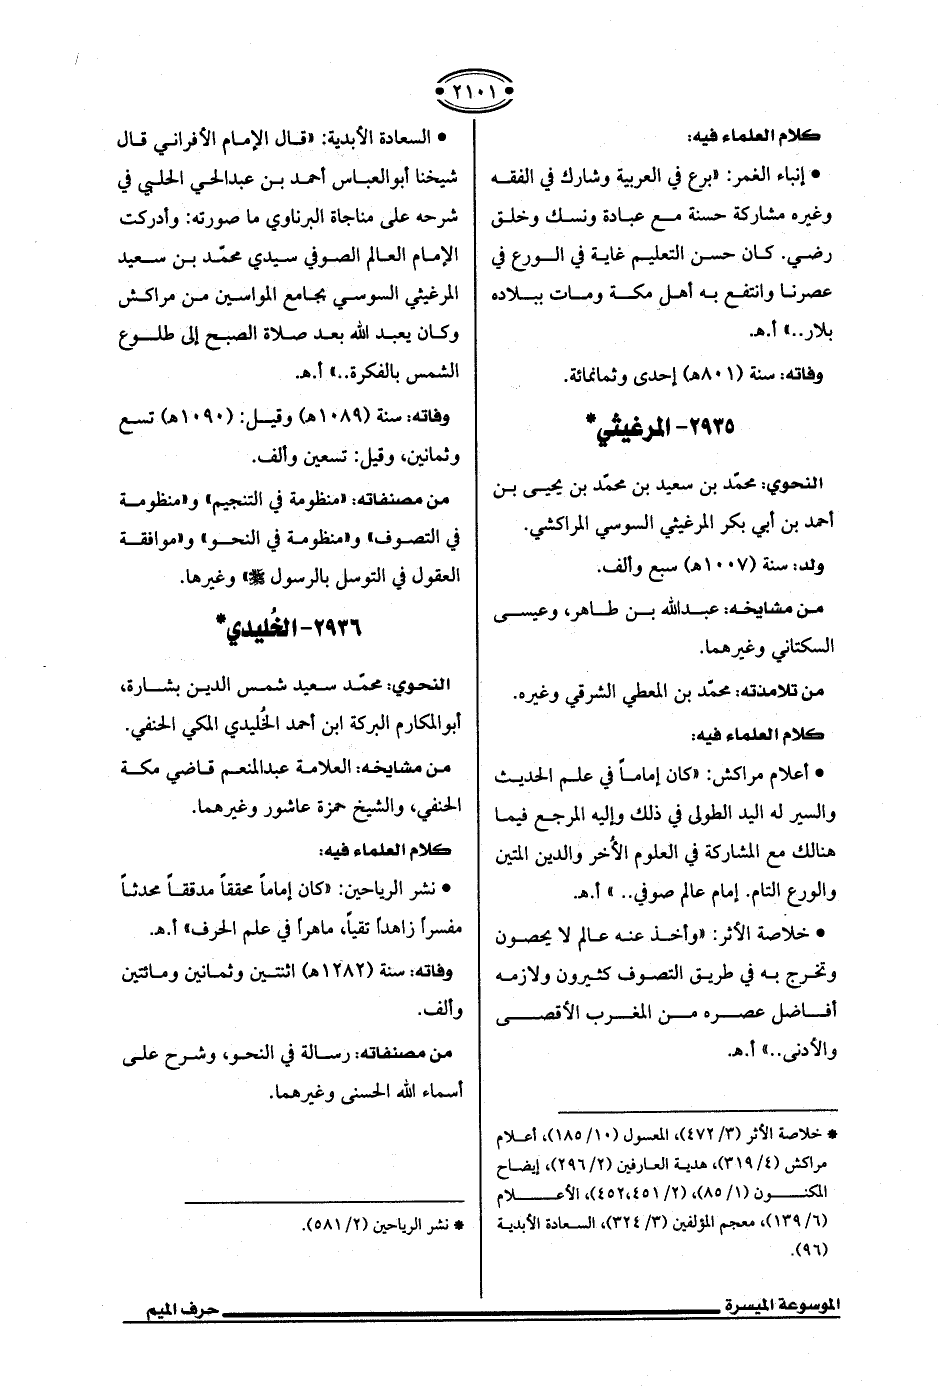 ٢١٠١
كلام العلماء فيه:
• إنباء الغمر: «برع في العربية وشارك في الفقه
وغيره مشاركة حسنة مع عبادة ونسك وخلق
رضي. كان حسن التعليم غاية في الورع في
عصرنا وانتفع به أهل مكة ومات ببلاده
بلار..» أ.هـ.
وفاته: سنة (٨٠١هـ) إحدى وثمانمائة.
٢٩٣٥- المرغيثي*
النحوي: محمّد بن سعيد بن محمّد بن يحيى بن
أحمد بن أبي بكر المرغيثي السوسي المراكشي.
ولد: سنة (١٠٠٧هـ) سبع وألف.
من مشايخه: عبدالله بن طاهر، وعيسى
السكتاني وغيرهما.
من تلامذته: محمّد بن المعطي الشرقي وغيره.
كلام العلماء فيه:
• أعلام مراكش: «كان إماماً في علم الحديث
والسير له اليد الطولى في ذلك وإليه المرجع فيما
هنالك مع المشاركة في العلوم الأُخر والدين المتين
والورع التام. إمام عالم صوفي.. » أ.هـ.
• خلاصة الأثر: «وأخذ عنه عالم لا يحصون
وتخرج به في طريق التصوف كثيرون ولازمه
أفاضل عصره من المغرب الأقصى
والأدنى..» أ.هـ.
* خلاصة الأثر (٣/ ٤٧٢)، المعسول (١٠/ ١٨٥)، أعلام
مراكش (٤/ ٣١٩)، هدية العارفين (٢/ ٢٩٦)، إيضاح
المكنون (١/ ٨٥)، (٢/ ٤٥١،٤٥٢)، الأعلام
(٦/ ١٣٩)، معجم المؤلفين (٣/ ٣٢٤)، السعادة الأبدية
(٩٦).
• السعادة الأبدية: «قال الإمام الأفراني قال
شيخنا أبوالعباس أحمد بن عبدالحي الحلبي في
شرحه على مناجاة البرناوي ما صورته: وأدركت
الإمام العالم الصوفي سيدي محمّد بن سعيد
المرغيثي السوسي بجامع المواسين من مراكش
وكان يعبد الله بعد صلاة الصبح إلى طلوع
الشمس بالفكرة..» أ.هـ.
وفاته: سنة (١٠٨٩هـ) وقيل: (١٠٩٠هـ) تسع
وثمانين، وقيل: تسعين وألف.
من مصنفاته: «منظومة في التنجيم» و«منظومة
في التصوف» و«منظومة في النحو» و«موافقة
العقول في التوسل بالرسول ﷺ» وغيرها.
٢٩٣٦- الخُليدي*
النحوي: محمّد سعيد شمس الدين بشارة،
أبوالمكارم البركة ابن أحمد الخُليدي المكي الحنفي.
من مشايخه: العلامة عبدالمنعم قاضي مكة
الحنفي، والشيخ حمزة عاشور وغيرهما.
كلام العلماء فيه:
• نشر الرياحين: «كان إماماً محققاً مدققاً محدثاً
مفسراً زاهداً تقياً، ماهراً في علم الحرف» أ.هـ.
وفاته: سنة (١٢٨٢هـ) اثنتين وثمانين ومائتين
وألف.
من مصنفاته: رسالة في النحو، وشرح على
أسماء الله الحسنى وغيرهما.
* نشر الرياحين (٢/ ٥٨١).
الموسوعة الميسرة
حرف الميم